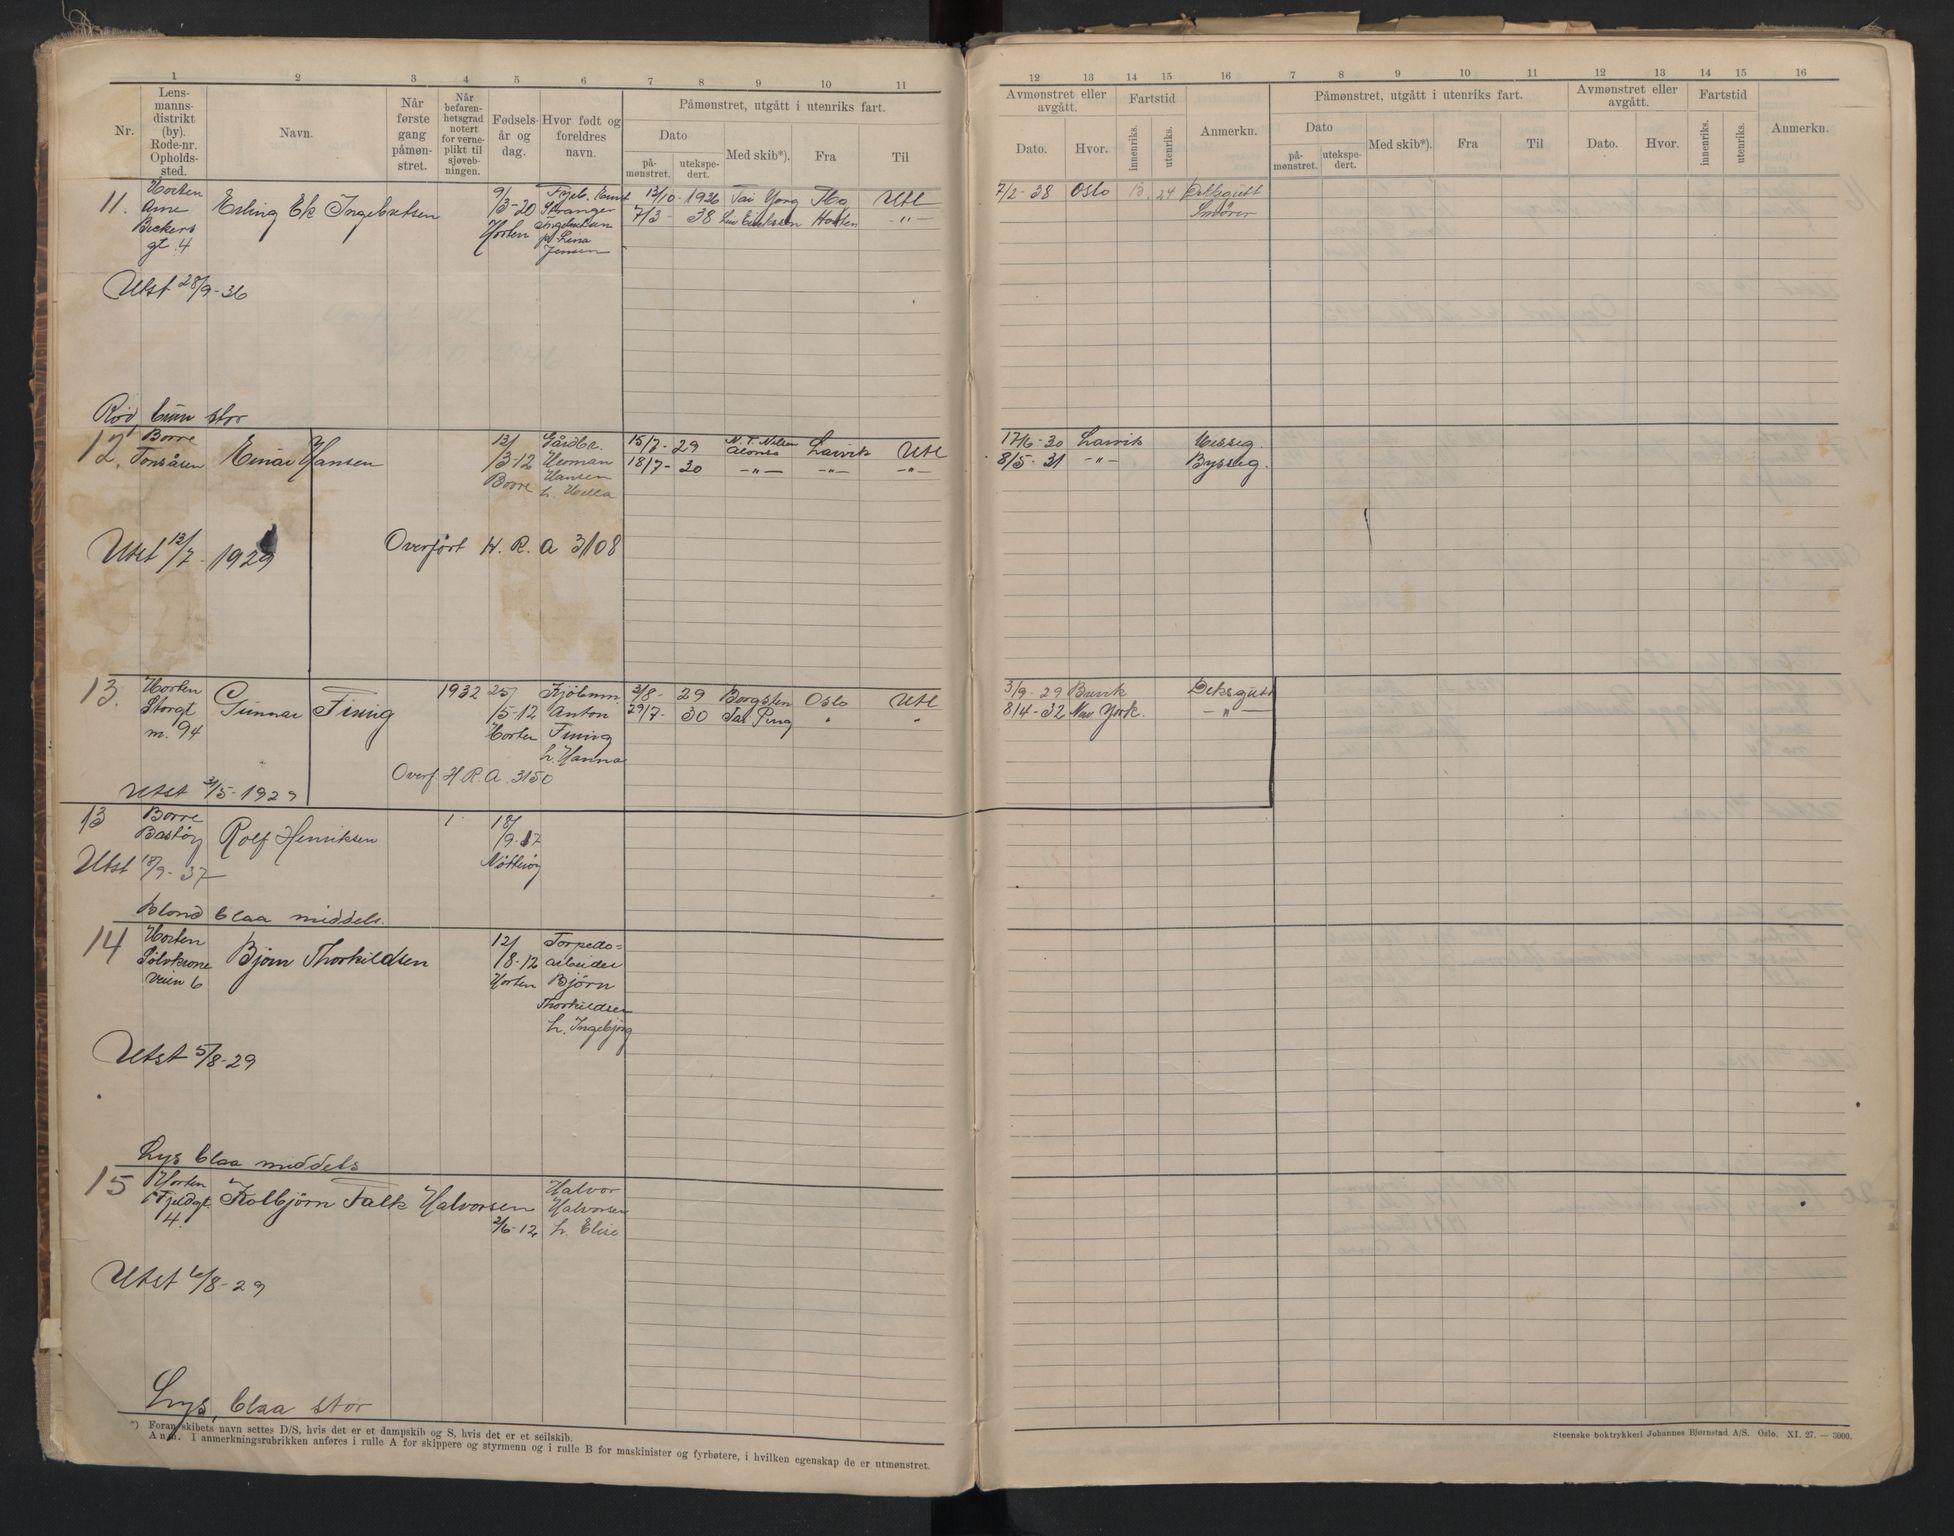 1 2 3 4 5 6 7 8 9 10 11
Nr.
Lens-
manns-
distrikt
(by).
Rode-nr.
Opholds-
sted.
Navn.
Når
første
gang
påmøn-
stret.
Når
befaren-
hetsgrad
notert
for verne-
plikt til
sjøvæb-
ningen.
Fødsels-
år og
dag.
Hvor født og
foreldres
navn.
Påmønstret, utgått i utenriks fart.
Dato
på-
mønstret.
utekspe-
dert.
Med skib*).
Fra
Til
11.
Horten
Arne
Bickers
gt. 4
Erling Ek Ingebretsen
9/
3-20
Horten
Stranger
Ingebretsen
Lena
Jensen
13/10 - 1936 Tai Yang Utl
7/3 - 38 Horten -"-
Utst 28/9-36
Rød, brun stor
12.
Borre
Tonsåsen
Einar Hansen
13/
3-12
Borre
Gårdbr.
Herman
Hansen
h. Hella
15/7 - 29 N. T. Nielsen
Alonso Larvik Utl
18/7 - 30 -"- -"- -"-
Utst 13/7 - 1929
Overført H. R. A 3108
13.
Horten
Storgt
m. 94
Gunnar Fining
1932
25/
5-12
Horten
Kjøbmn.
Anton
Fining
h. Hanna
3/8 - 29 Borgsten Oslo Utl
29/7 - 30 Tai Ping " "
Overf. H. R. A. 3150
Utst 31/5-1929
13
Borre
Bastøy
Rolf Henriksen
1.
18/
9-17
Nøtterøy
Utst 18/9-37
Blond blaa middels.
14
Horten
Sølvkrone
veien 6
Bjørn Thorkildsen
12/
8-12
Horten
Torpedo=
arbeider
Bjørn
Thorkildsen
h. Ingebjørg
Utst 5/8-29
Lys blaa middels
15
Horten
Fjeldgt.
4.
Kolbjørn Falk Halvorsen
2/6-12
Halvor
Halvorsen
h. Elise
Utst 6/8-29
Lys, blaa stor
*) Foran skibets navn settes D/S, hvis det er et dampskib og S, hvis det er et seilskib.
Anm. I anmerkningsrubrikken anføres i rulle A for skippere og styrmenn og i rulle B for maskinister og fyrbøtere, i hvilken egenskap de er utmønstret.
12 13 14 15 16 7 8 9 10 11 12 13 14 15 16
Avmønstret eller
avgått.
Dato.
Hvor.
Fartstid
innenriks.
utenriks.
Anmerkn.
Påmønstret, utgått i utenriks fart.
Dato
på-
mønstret.
utekspe-
dert.
Med skib*).
Fra
Til
Avmønstret eller
avgått.
Dato.
Hvor.
Fartstid
innenriks.
utenriks.
Anmerkn.
7/2 - 38 Oslo B. 24 Deksgutt
Smører
17/6 - 30 Larvik Messeg.
8/5 - 31 -"- Bysseg.
3/9 - 29 Brevik Deksgutt
8/4 - 32 New York. -"-
Steenske boktrykkeri Johannes Bjørnstad A/S. Oslo. XI. 27. — 3000.